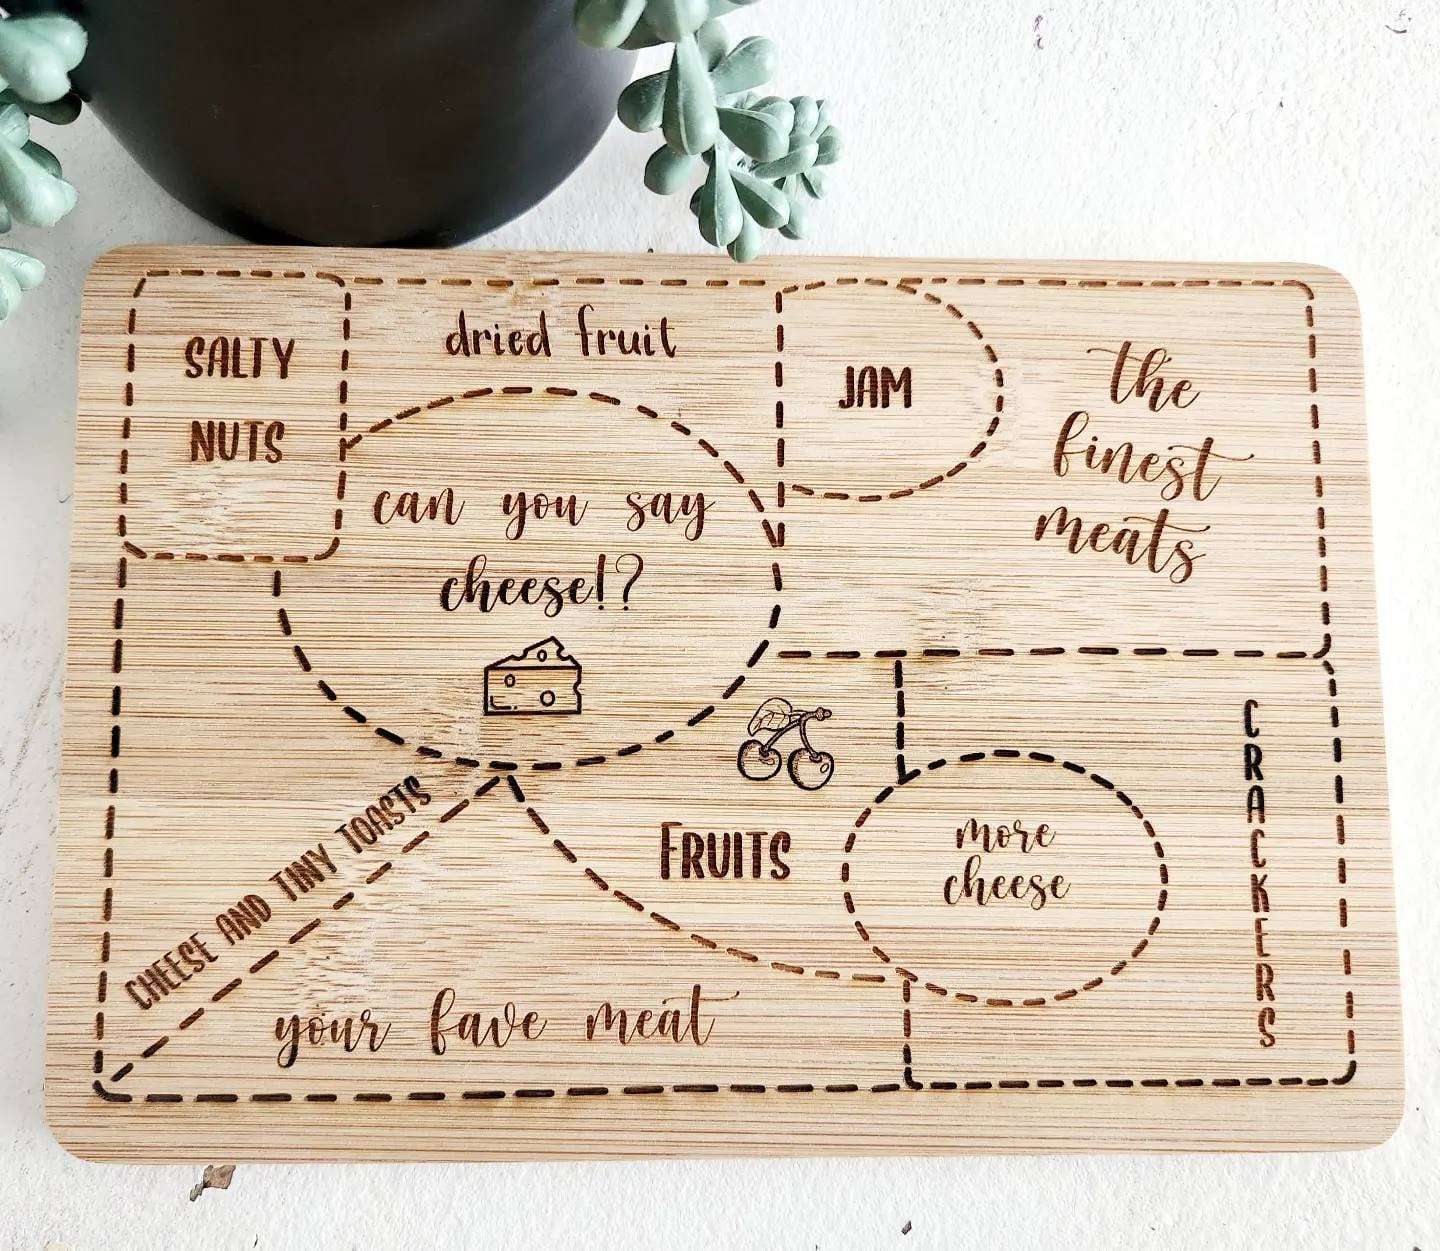 SALTY
NUTS
dried fruit
JAM
the
finest
meats
can you say
cheese!?
CHEESE AND TINY TOASTS
FRUITS
more
cheese
CRACKERS
your fave meat